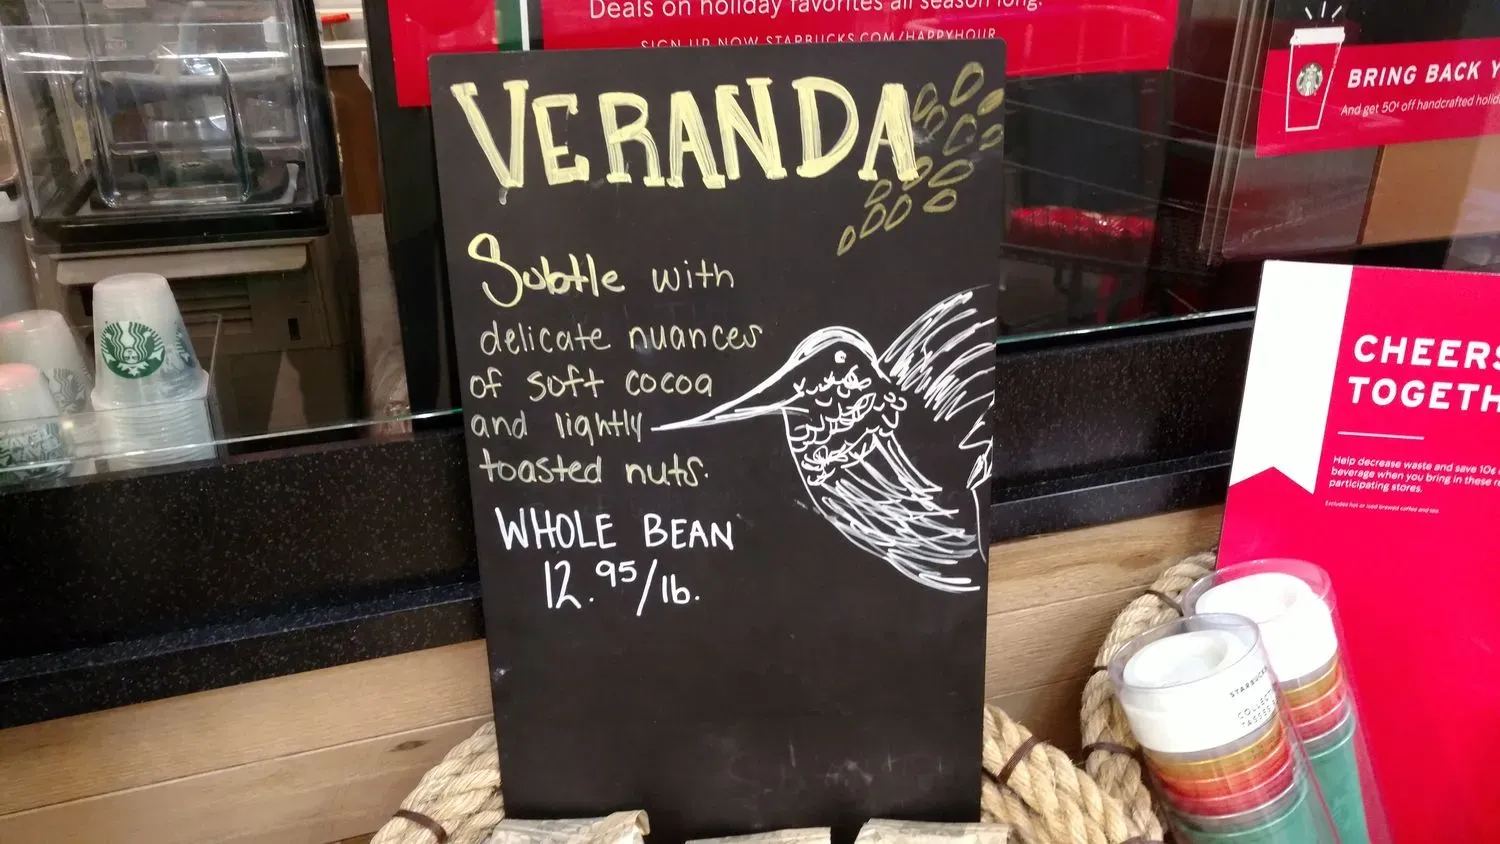 Deals on holiday favorites all season long.
SIGN UP NOW STARBUCKS.COM/HAPPYHOUR
BRING BACK Y
And get 50¢ off handcrafted holid
VERANDA
Subtle with
delicate nuances
of soft cocoa
and lightly
toasted nuts.
WHOLE BEAN
12.95/lb.
CHEERS
TOGETH
Help decrease waste and save 10¢
beverage when you bring in these re
participating stores.
Excludes hot or iced brewed coffee and tea
STARBUCKS